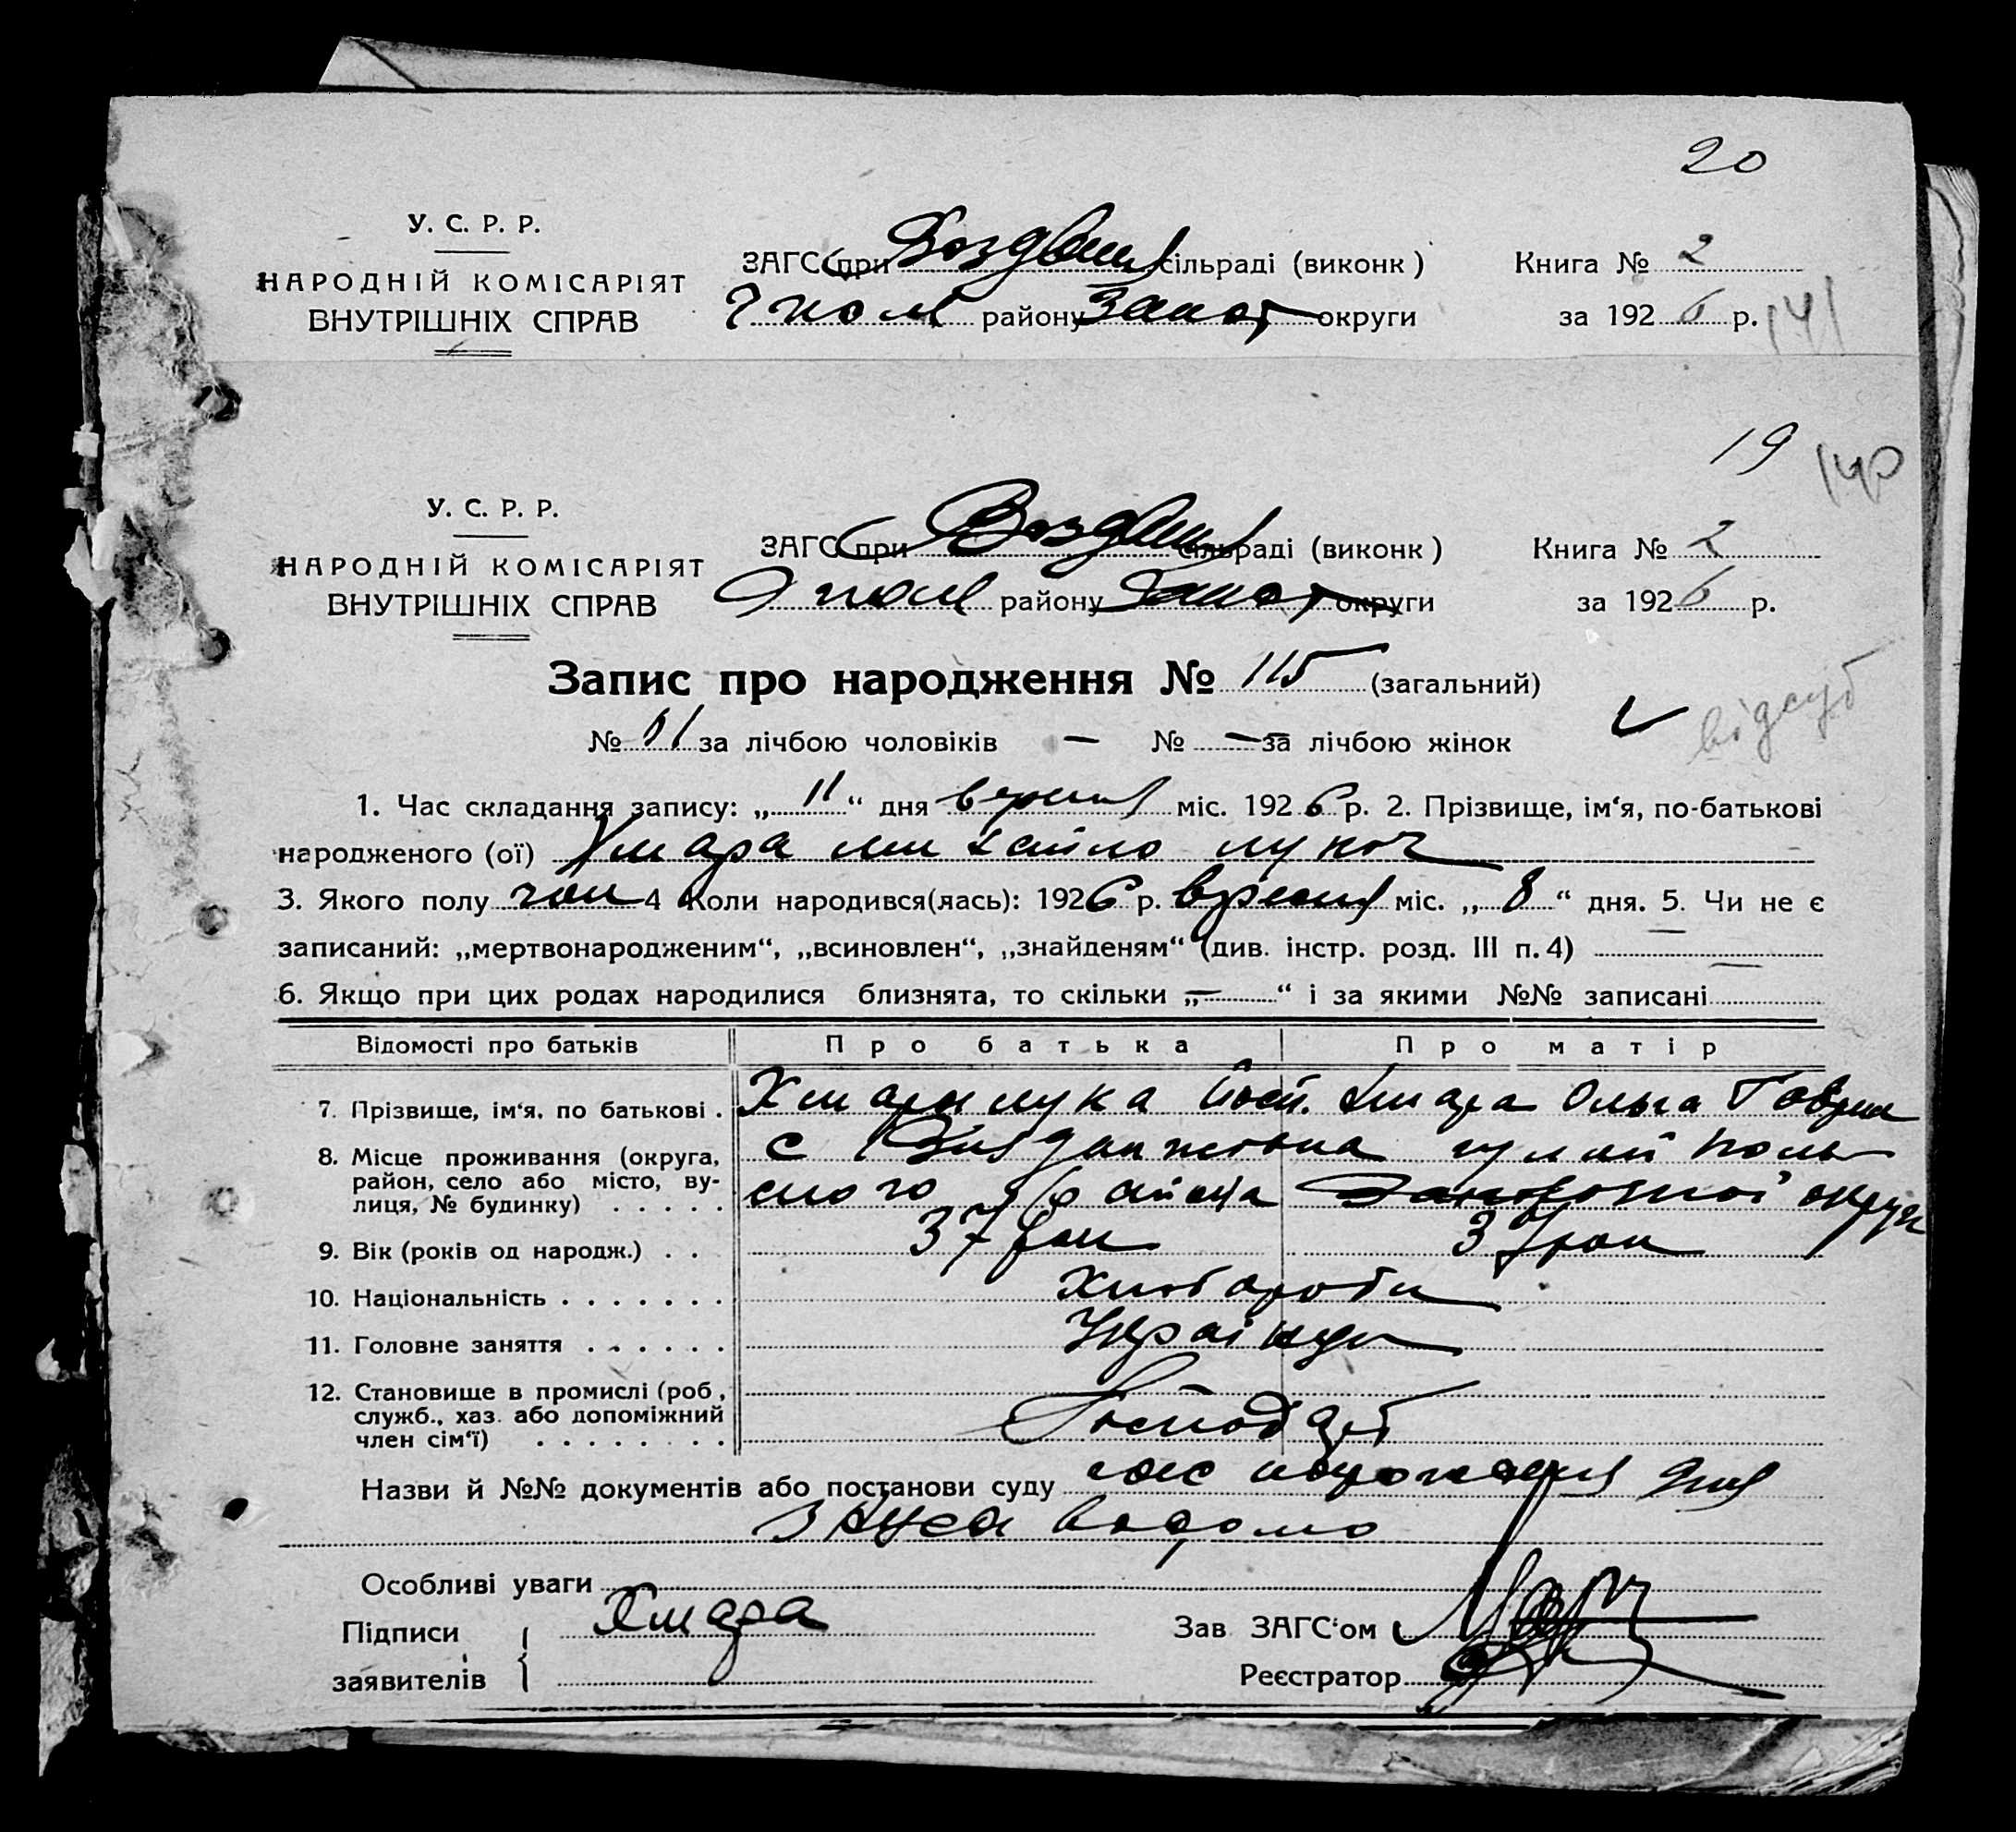 20
У. С. Р. Р.
НАРОДНІЙ КОМІСАРІЯТ
ВНУТРІШНІХ СПРАВ
ЗАГС при Воздвиж сільраді (виконк)
Гпол району Запор округи
Книга № 2
за 1926 р. 141
19 140
У. С. Р. Р.
НАРОДНІЙ КОМІСАРІЯТ
ВНУТРІШНІХ СПРАВ
ЗАГС при Воздвиж сільраді (виконк)
Гпол району Запор округи
Книга № 2
за 1926 р.
Запис про народження № 115 (загальний)
№ 61 за лічбою чоловіків — № — за лічбою жінок
відсуб
1. Час складання запису: „ 11 “ дня вересня міс. 1926 р. 2. Прізвище, ім‘я, по-батькові
народженого (ої) Хмара Михайло Лукич
3. Якого полу чол 4 Коли народився(лась): 1926 р. вересня міс. „ 8 “ дня. 5. Чи не є
записаний: „мертвонародженим“, „всиновлен“, „знайденям“ (див. інстр. розд. III п. 4) —
6. Якщо при цих родах народилися близнята, то скільки „—“ і за якими №№ записані —
Відомості про батьків Про батька Про матір
7. Прізвище, ім‘я, по батькові . Хмара Лука Хмара Ольга Гаврил
8. Місце проживання (округа, район, село або місто, вулиця, № будинку) . . . . . с Воздвижевка Гуляй Поль
ського району Запорозької округи
9. Вік (років од народж.) . . 37 рок 37 рок
10. Національність . . . . . . . Хлібороби
11. Головне заняття . . . . . . Українці
12. Становище в промислі (роб, служб., хаз. або допоміжний член сім‘ї) . . . . . . . . Господар
Назви й №№ документів або постанови суду
Особливі уваги
Підписи заявителів { Хмара
Зав ЗАГС‘ом
Реєстратор